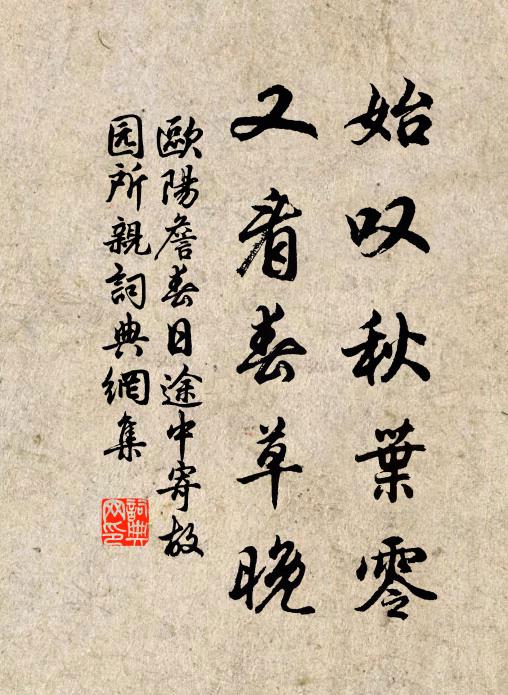 始叹秋葉零
又看春草晚
歐陽詹春日途中寄故
园所親詞典網集
詞典
网印